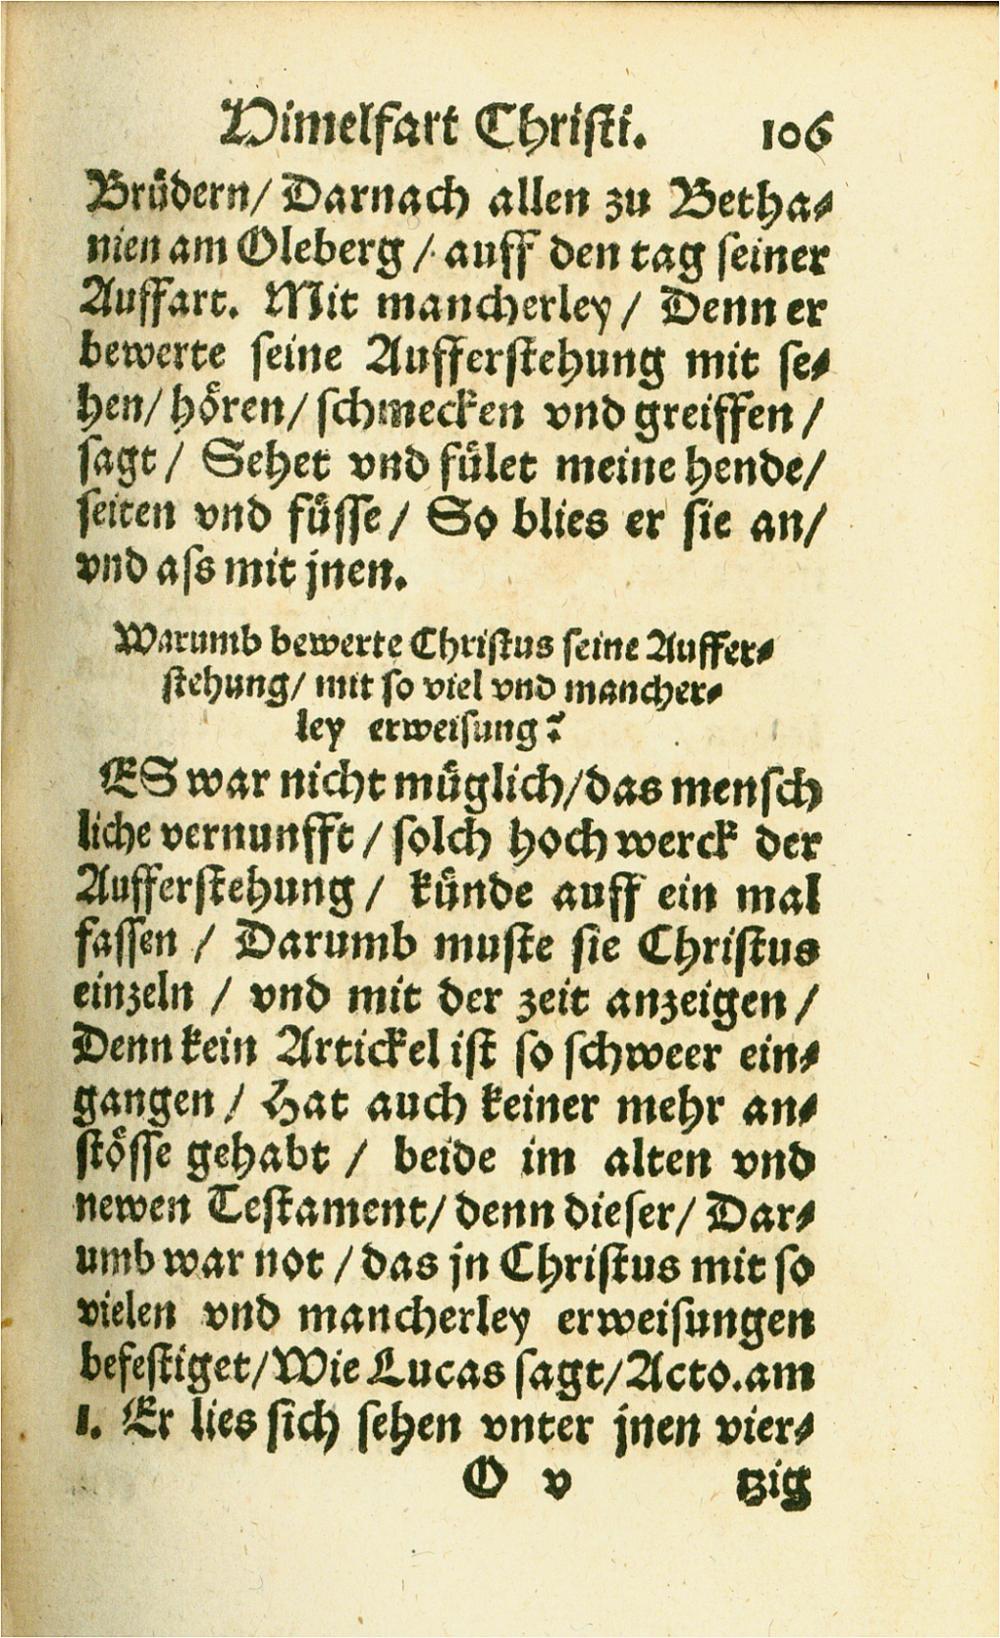 Himelfart Christi. 106
Brüdern/ Darnach allen zu Betha⸗
nien am Oleberg / auff den tag seiner
Auffart. Mit mancherley / Denn er
bewerte seine Aufferstehung mit se⸗
hen/ hören/ schmecken vnd greiffen /
sagt / Sehet vnd fület meine hende/
seiten vnd füsse / So blies er sie an/
vnd ass mit jnen.
Warumb bewerte Christus seine Auffer⸗
stehung/ mit so viel vnd mancher⸗
ley erweisung?
ES war nicht müglich/das mensch
liche vernunfft / solch hoch werck der
Aufferstehung / künde auff ein mal
fassen / Darumb muste sie Christus
einzeln / vnd mit der zeit anzeigen /
Denn kein Artickel ist so schweer ein⸗
gangen / Hat auch keiner mehr an⸗
stösse gehabt / beide im alten vnd
newen Testament/ denn dieser/ Dar⸗
umb war not / das jn Christus mit so
vielen vnd mancherley erweisungen
befestiget/Wie Lucas sagt/Acto.am
1. Er lies sich sehen vnter jnen vier⸗
O v tzig